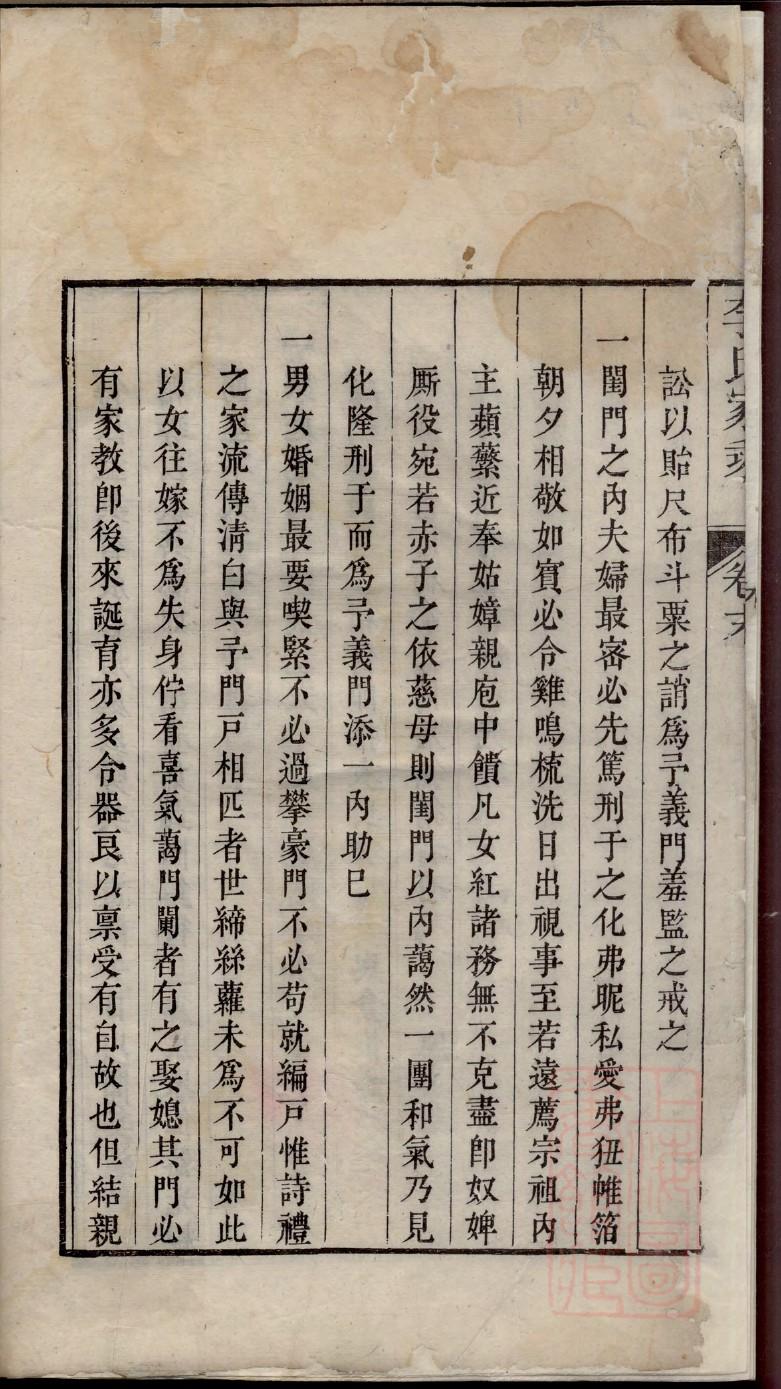 李氏家乘
卷末
訟以貽尺布斗粟之誚爲予義門羞監之戒之
一閨門之內夫婦最審必先篤刑于之化弗昵私愛弗狃帷箔
朝夕相敬如賓必令雞鳴梳洗日出視事至若遠薦宗祖內
主蘋蘩近奉姑嫜親庖中饋凡女紅諸務無不克盡卽奴婢
厮役宛若赤子之依慈母則閨門以內藹然一團和氣乃見
化隆刑于而爲予義門添一內助已
一男女婚姻最要喫緊不必過攀豪門不必苟就編戸惟詩禮
之家流傳淸白與予門戸相匹者世締絲蘿未爲不可如此
以女往嫁不爲失身佇看喜氣藹門闌者有之娶媳其門必
有家教卽後來誕育亦多令器良以禀受有自故也但結親